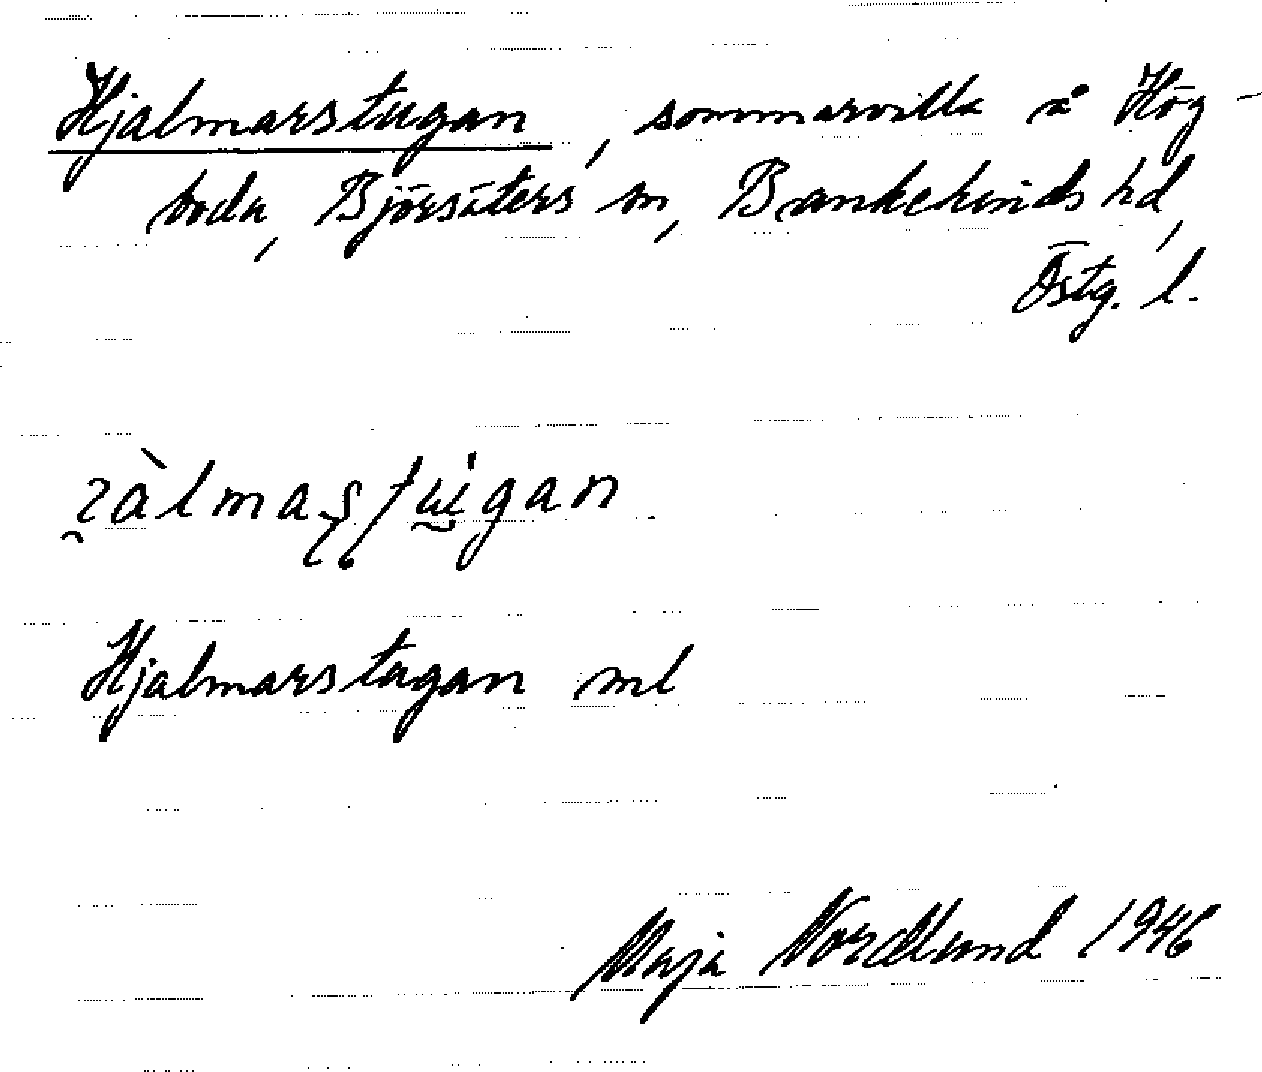 Hjalmarstugan, sommarvilla å Hög-
boda, Björsäters sn, Bankekinds hd,
Östg. l.
Hjalmarstugan ml
Maja Nordlund 1946